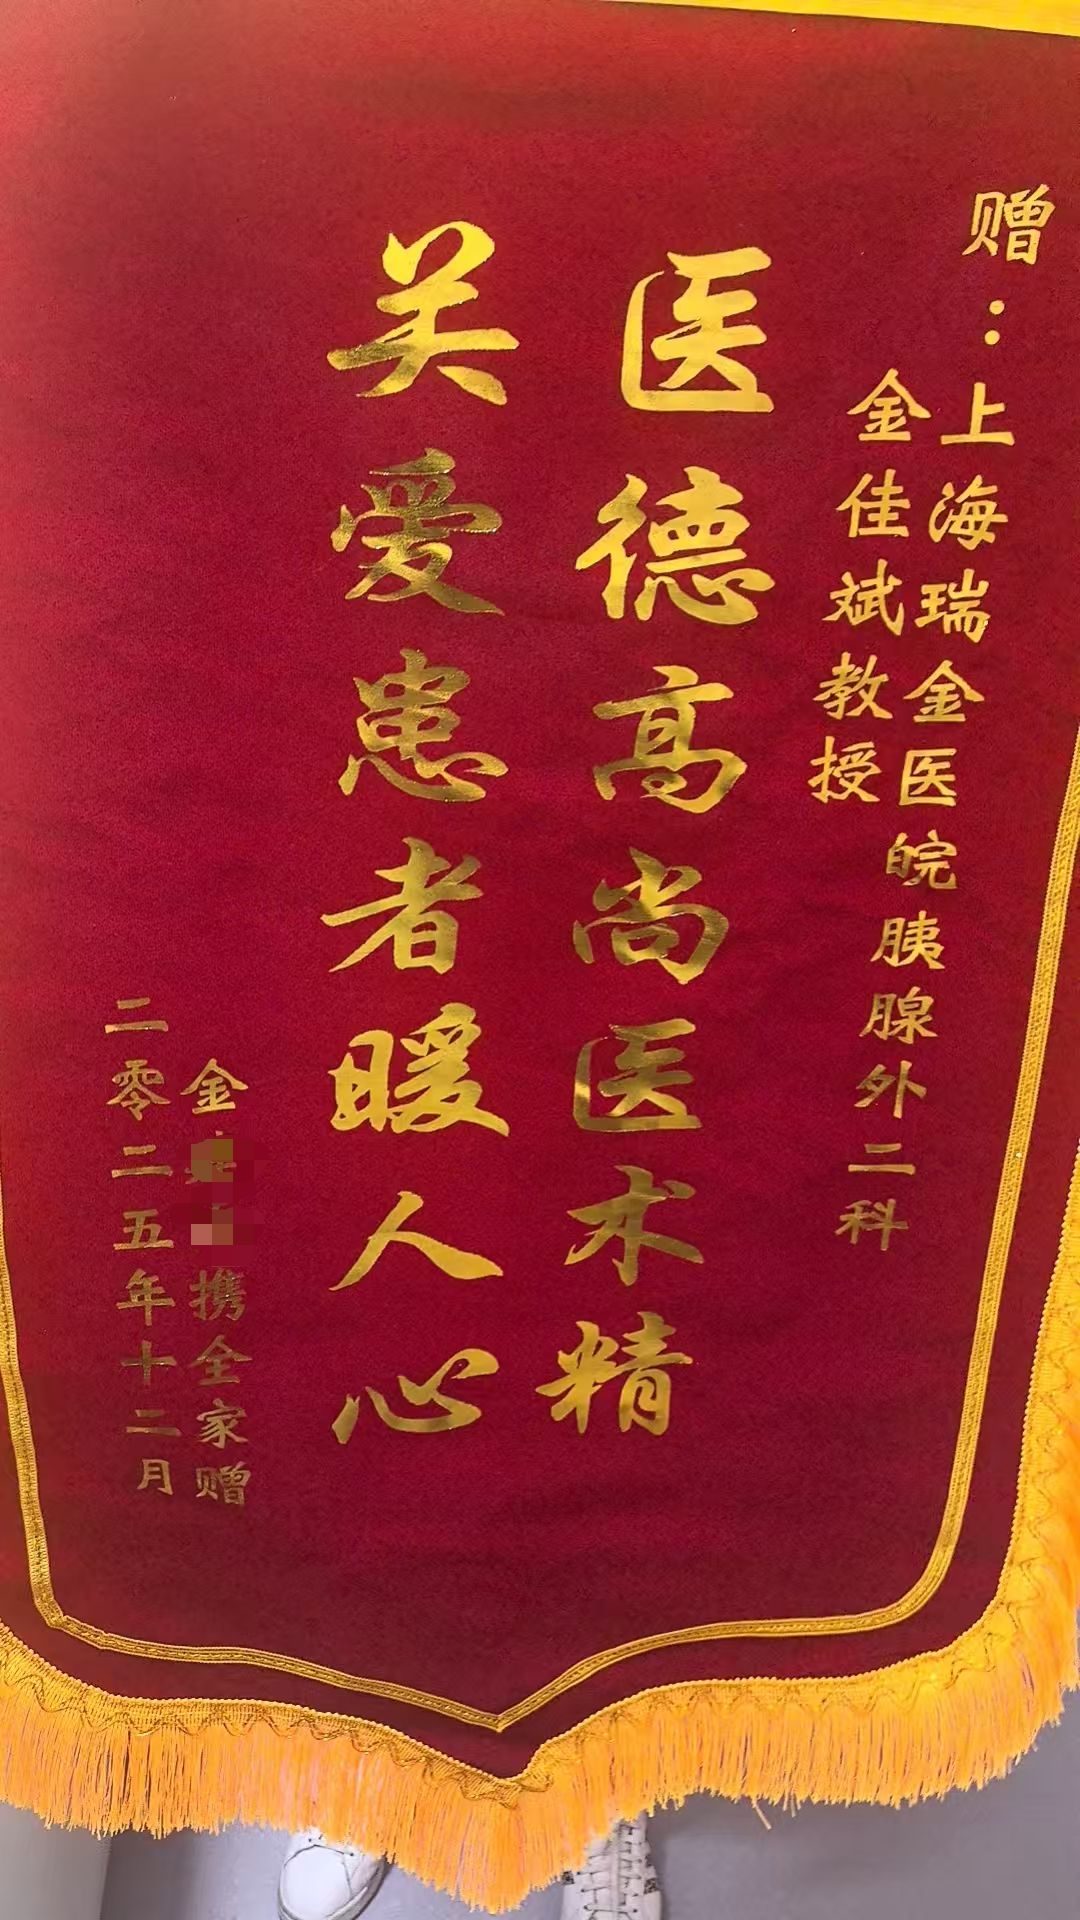 赠：上海瑞金医皖胰腺外二科
金佳斌教授
医德高尚医术精
关爱患者暖人心
金携全家赠
二零二五年十二月